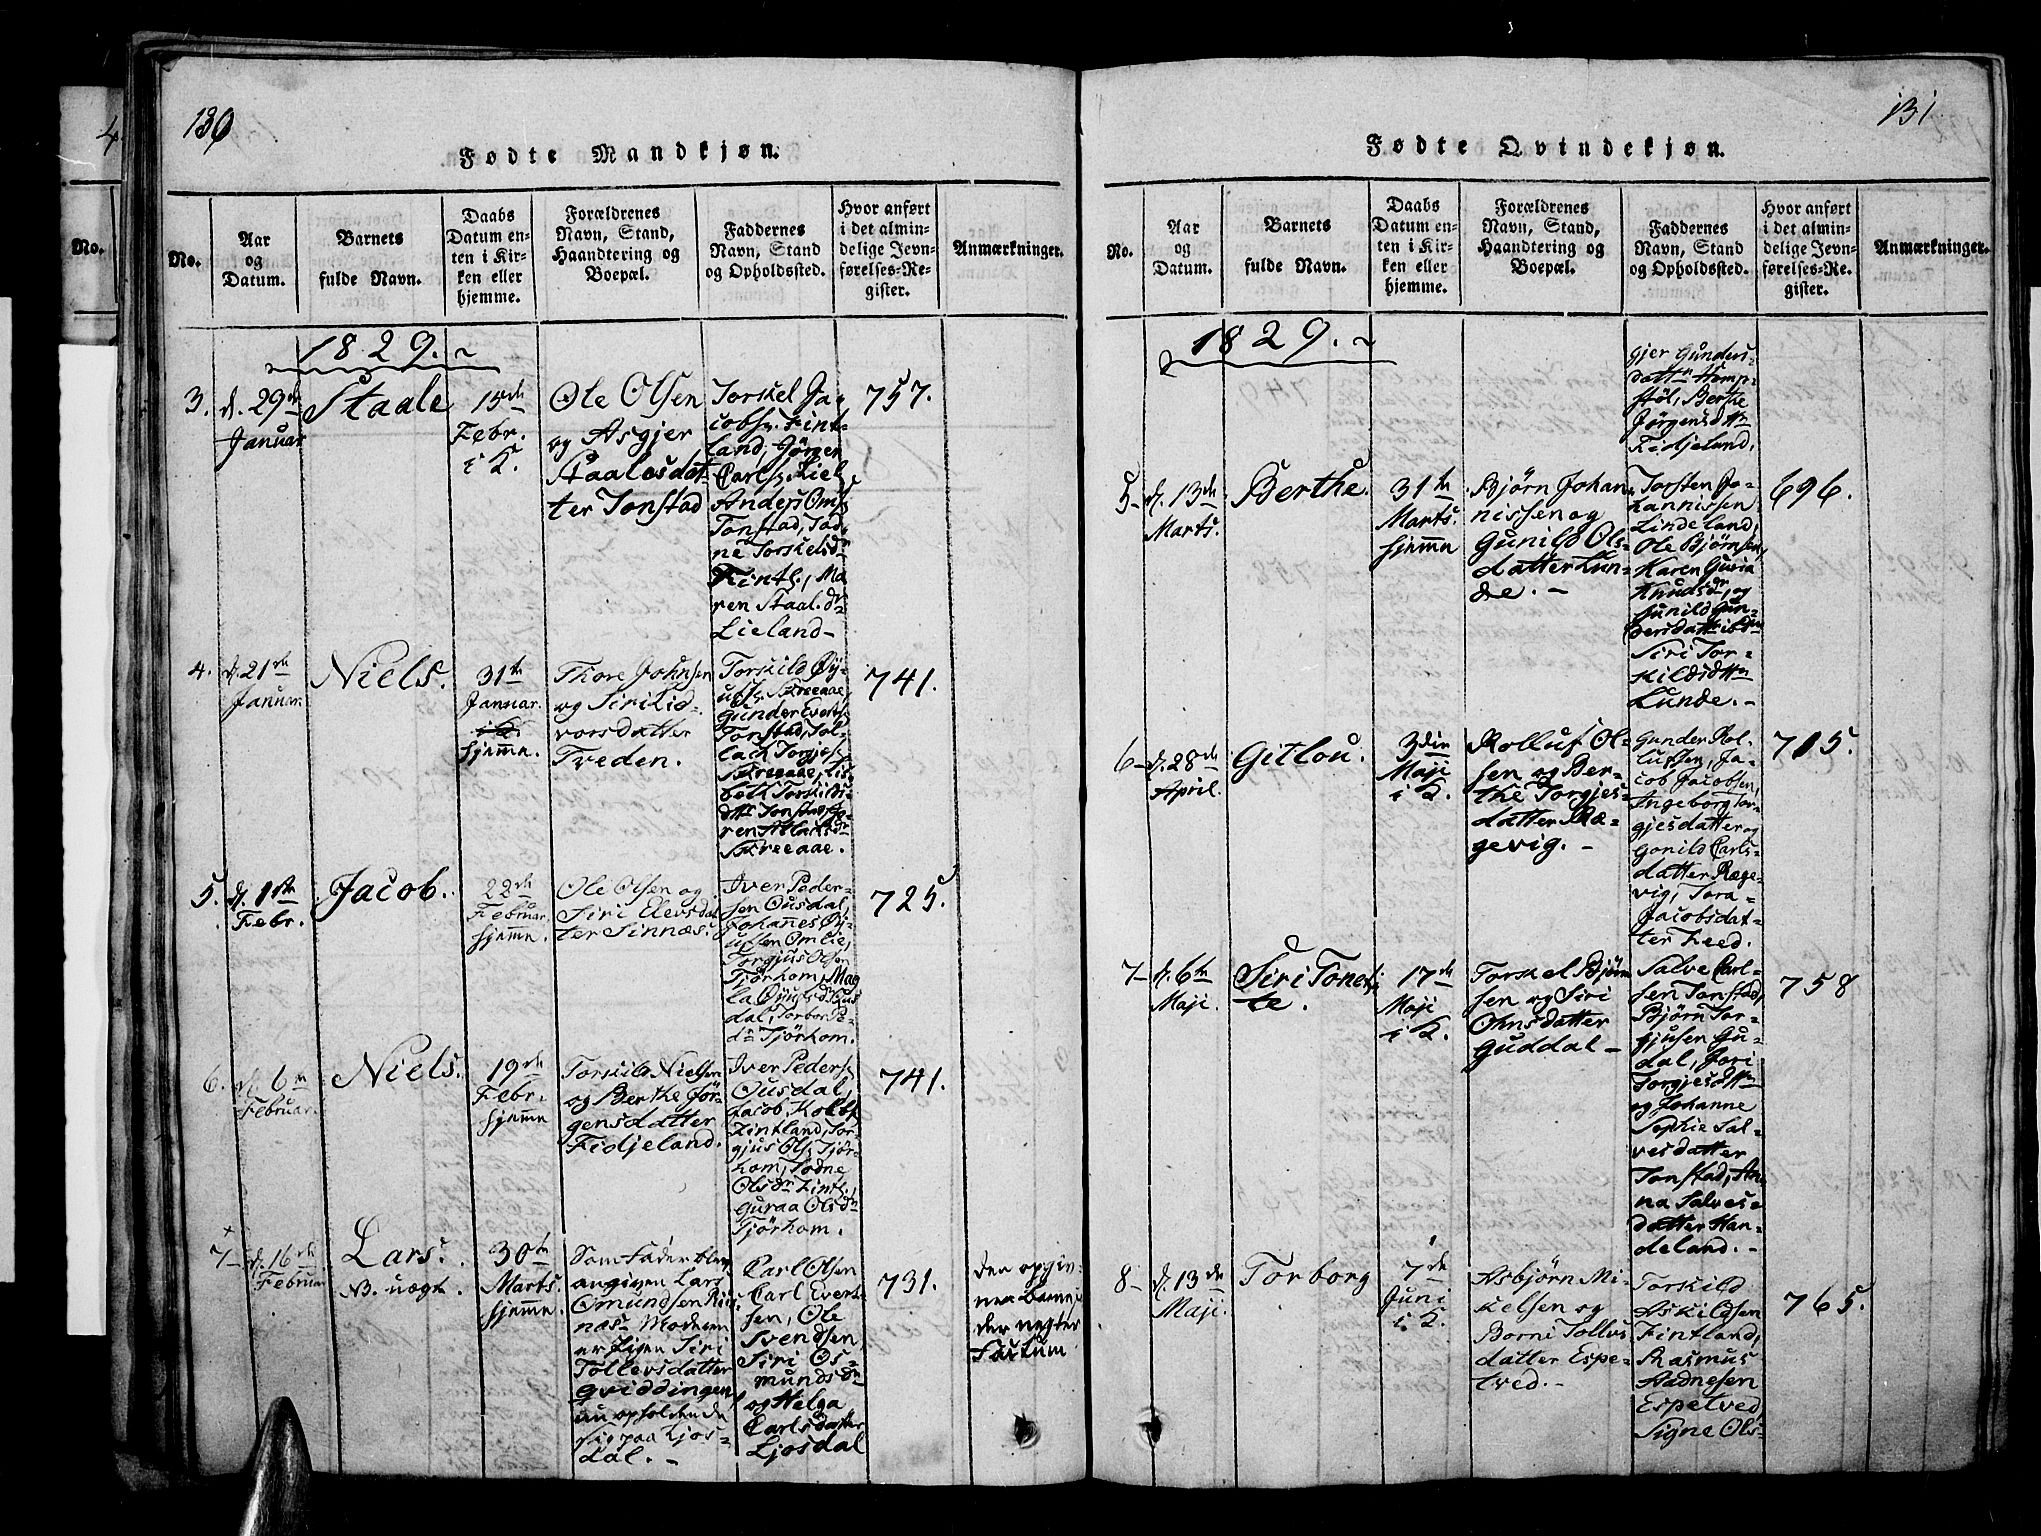 130
Fødte Mandkjøn.
No.
Aar
og
Datum.
Barnets
fulde Navn.
Daabs
Datum en-
ten i Kir-
ken eller
hjemme.
Forældrenes
Navn, Stand,
Haandtering og
Boepæl.
Faddernes
Navn, Stand
og Opholdssted.
Hvor anført
i det almin-
delige Jevn-
førelses-Re-
gister.
Anmærkninger.
1829.
3.
d. 29de
Januar
Staale
15de
Febr.
i K.
Ole Olsen
og Asgjer
Staalesdat-
ter Tonstad
Torskel Ja-
cobs. Fint-
land, Jörgen
Carls. Liel
Anders Oms.
Tonstad, Tad-
ne Torskelsdr
Fintl., Ma
ren Staal.dr
Lieland
757.
4.
d. 21de
Januar.
Niels.
31te
Januar.
i K.
hjemme.
Thore Johnsen
og Siri Lid-
vorsdatter
Treden.
Torskild Øy-
ufs. Skreeaae,
Gunder Everts.
Tonstad, Sal-
lach Torgjes.
Skreeaae, Lis-
beth Torskilds
dttr Tonstad, Jo-
ren Atlaksdr
Skreeaae.
741.
5.
d. 1ste
Febr.
Jacob.
22de
Februar.
hjemme.
Ole Olsen og
Siri Elevsdat
ter Sinnæs.
Iver Peder-
sen Ousdal,
Johannes Øy-
ufsen Omlie,
Torgjus Olsen
Tjörhom, Mag
la Øyufsdr Ous
dal, Torbor Pe-
dr Tjörhom.
725.
6.
d. 6te
Februar.
Niels.
19de
Febr.
hjemme
Torskild Nielsen
og Berthe Jör-
gensdatter
Fidjeland.
Iver Peders.
Ousdal,
Jacob Kolb.
Fintland, Tor-
gjus Ols. Tjör-
hom, Todne
Olsdr Fintl.,
Guraa Olsdr
Tjörhom.
741.
7
d. 16de
Februar
Lars.
N. uægt.
30te
Marts
hjemme
Som Fader blev
angiven Lars
Omundsen Ris
næs. Moderen
er Pigen Siri
Tollevsdatter
Qviddingen,
nu opholdende
sig paa Ljos-
dal.
Carl Olsen
Carl Evert-
sen, Ole
Svendsen
Siri Os-
mundsdr
og Helga
Carlsdatter
Ljosdal
731.
Den opgiv-
ne Barnef.
der negter
Factum
131
Fødte Qvindekjøn.
No.
Aar
og
Datum.
Barnets
fulde Navn.
Daabs
Datum en-
ten i Kir-
ken eller
hjemme.
Forældrenes
Navn, Stand,
Haandtering og
Boepæl.
Faddernes
Navn, Stand
og Opholdssted.
Hvor anført
i det almin-
delige Jevn-
førelses-Re-
gister.
Anmærkninger.
1829.
Gjer Gunders-
dattr Homp-
stöl, Berthe
Jörgensdttr
Fidjeland.
5
d. 13de
Marts.
Berthe.
31te
Marts.
hjemme
Björn Johan-
nissen og
Gunild Ols-
datter Lun-
de.
Torsten Jo-
hannissen
Lindeland,
Ole Björnsen,
Karen Guria
Knudsdr, og
Gunild Gun-
dersdattr ibdm
Siri Tor-
kildsdttr
Lunde.
696.
6
d. 28de
April.
Gitlou.
3die
Maji
i K.
Rolluf Ol-
sen og Ber-
the Torgjes-
datter Ræ-
gevig.
Gunder Rol-
lufsen, Ja-
cob Jacobsen,
Ingeborg Tor-
gjesdatter og
Gonild Carls-
datter Ræge-
vig, Tora
Jacobsdat-
ter Feed.
715.
7
d. 6te
Maji.
Siri Tonet-
te.
17de
Maji
i K.
Torskel Björn
sen og Siri
Ohnsdatter
Guddal
Salve Carl-
sen Tonstad,
Björn Tor-
gjusen Gu-
dal, Jori
Torgjesdttr
og Johanne
Sophie Sal-
vesdatter
Tonstad, An-
na Salves-
datter Han-
deland.
758
8
d. 13de
Maji.
Torborg
7de
Juni
i K.
Asbjörn Mi-
kelsen og
Borni Tollus
datter Espe-
tved.
Torskild
Askildsen
Fintland,
Rasmus
Aadnesen
Espetved
Signe Ols-
765.
4
No.